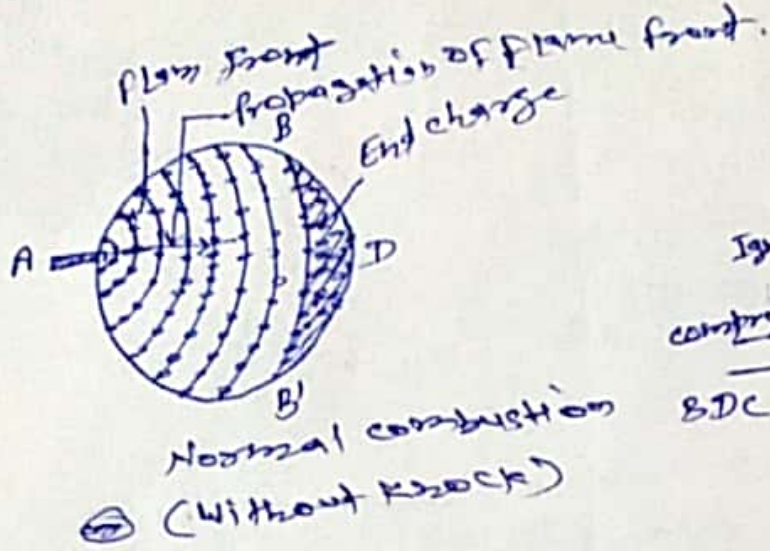 Flam front
Propagation of flame front.
B
End charge
A
D
B'
Normal combustion
(Without knock)
Ign
compre
BDC